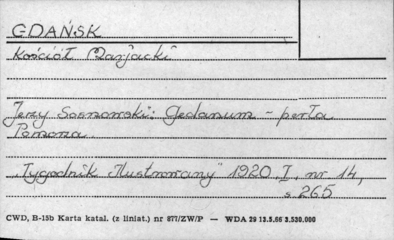 GDAŃSK
Kościół Marjacki
Jerzy Sosnowski: Gedanum - perła
Pomorza.
"Tygodnik Ilustrowany" 1920 I, nr 14,
s. 265
CWD, B-15b Karta katal. (z liniat.) nr 877/ZW/P — WDA 29 13.5.66 3.530.000